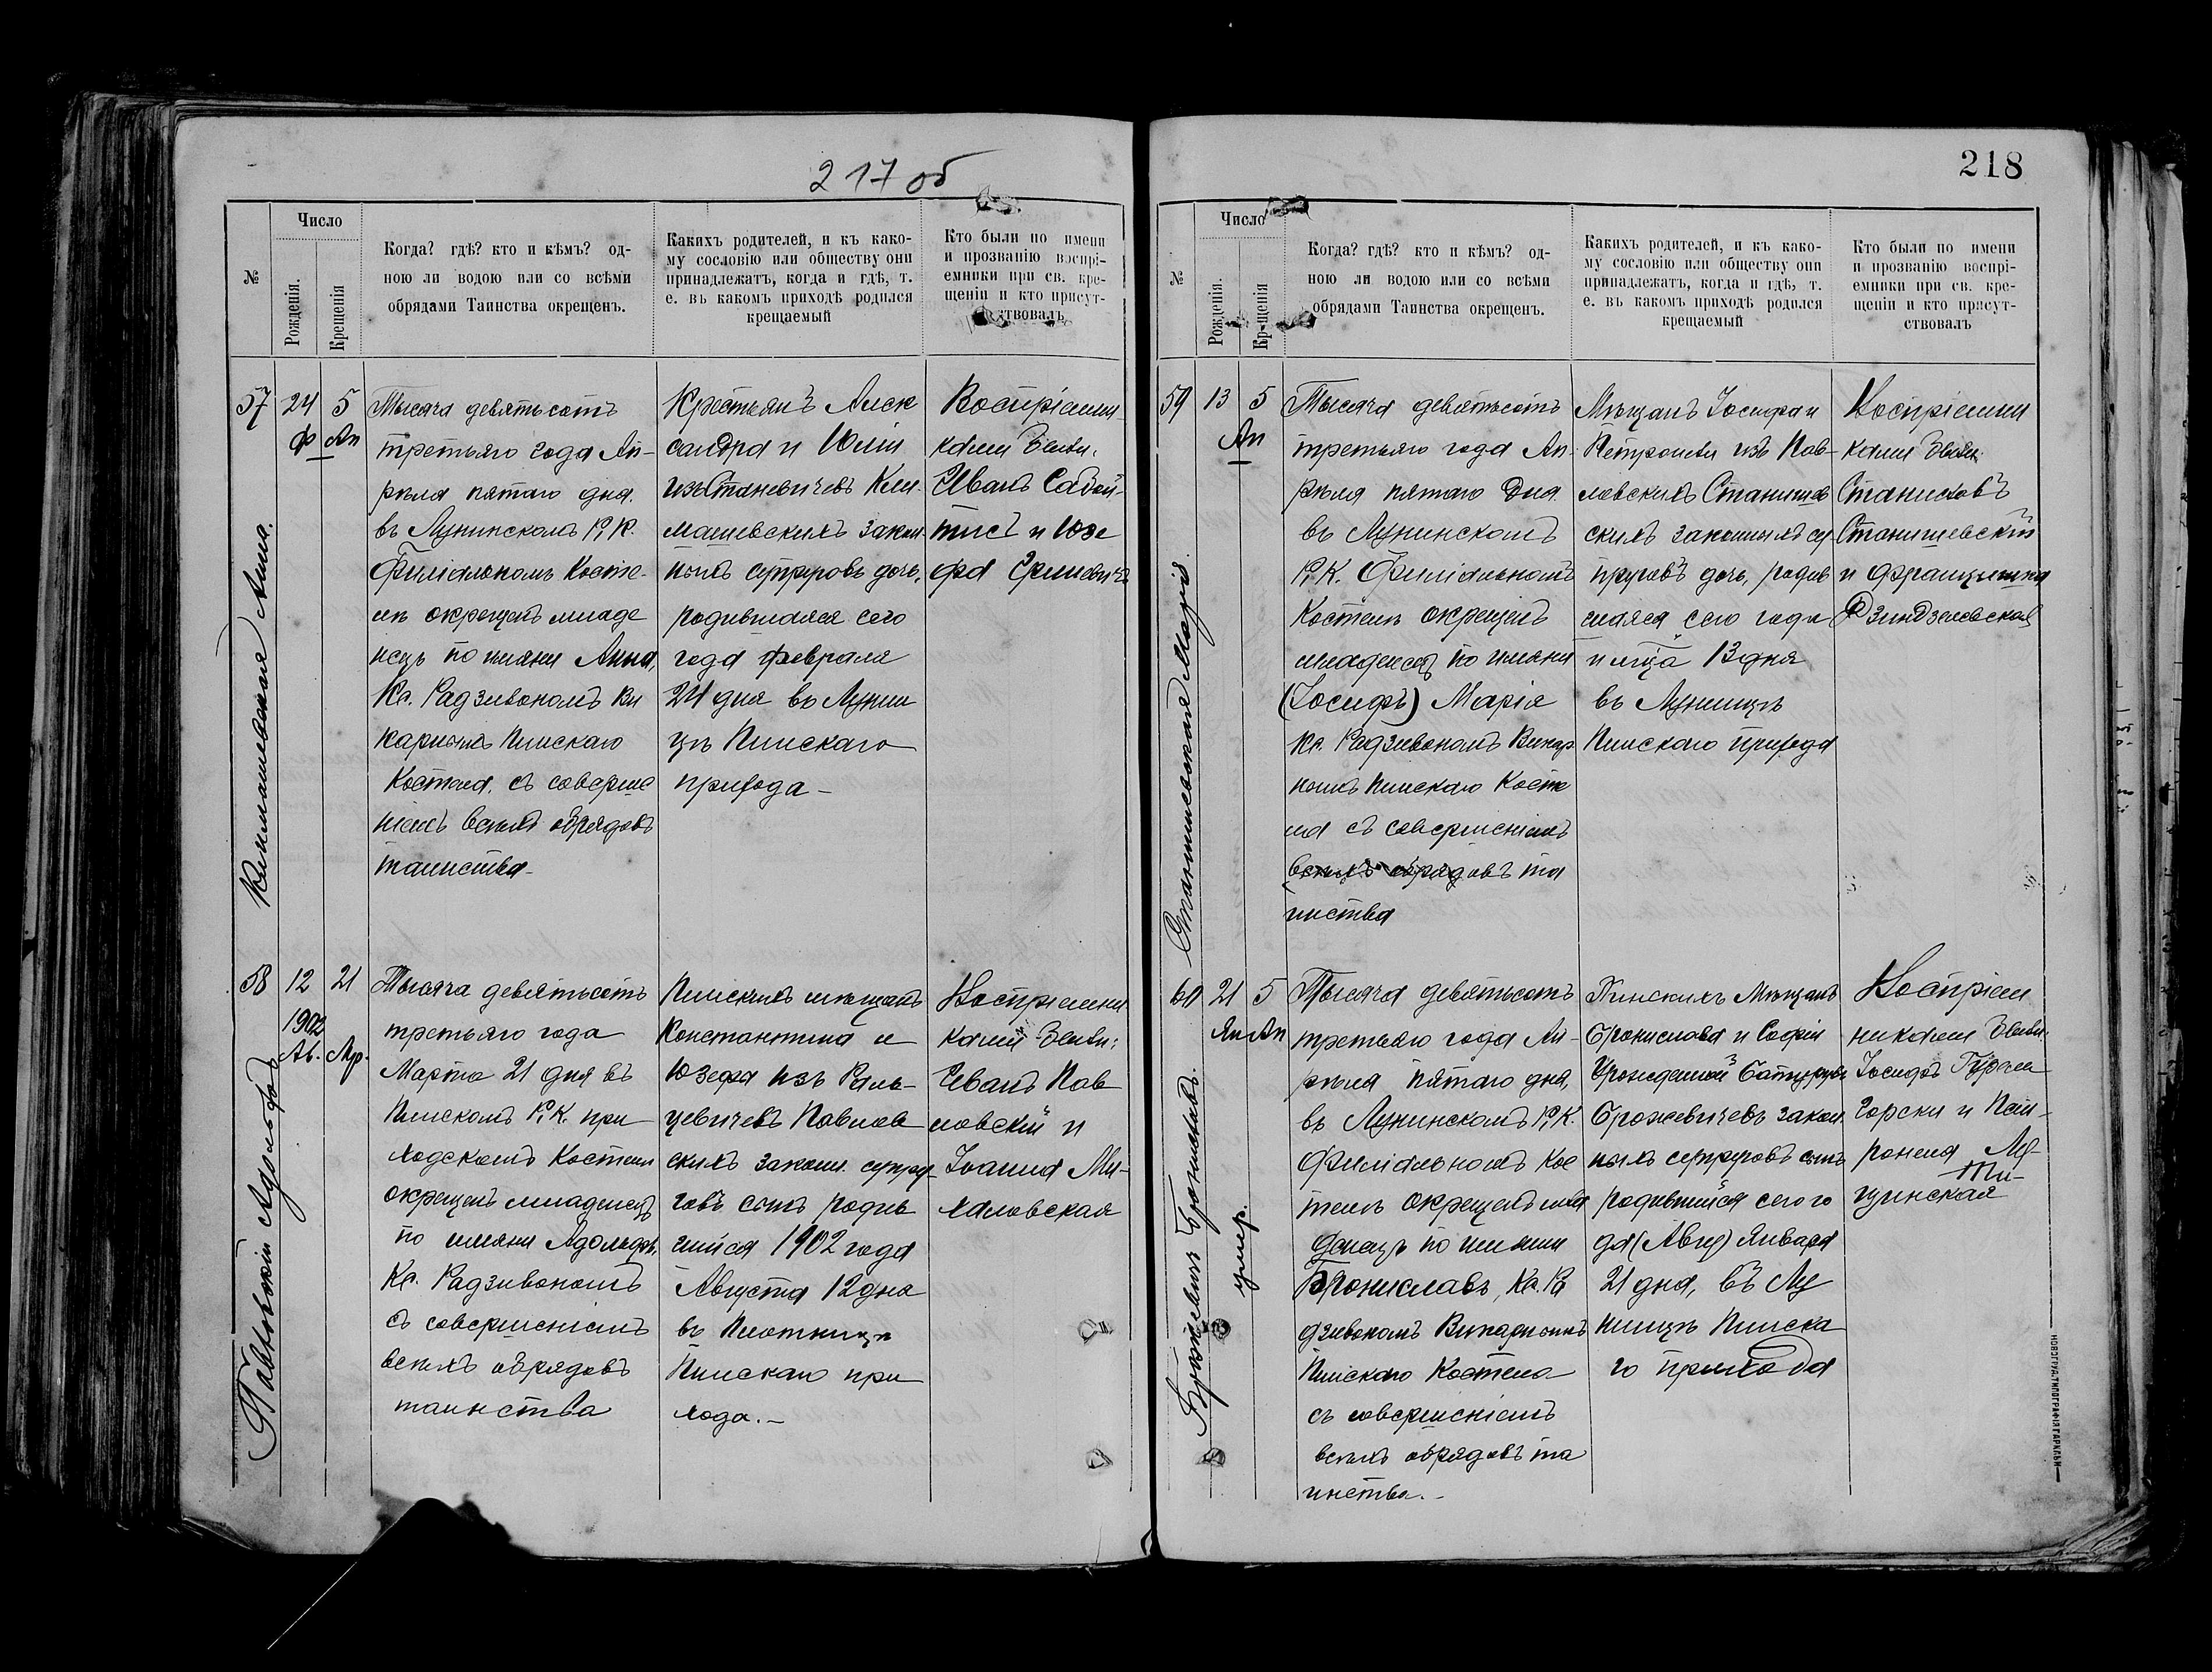 217 об
№
Число
Рожденія.
Крещенія
Когда? гдѣ? кто и кѣмъ? од-
ною ли водою или со всѣми
обрядами Таинства окрещенъ.
Какихъ родителей, и къ како-
му сословію или обществу они
принадлежатъ, когда и гдѣ, т.
е. въ какомъ приходѣ родился
крещаемый
Кто были по имени
и прозванію воспрі-
емники при св. кре-
щеніи и кто присут-
ствовалъ
57
Анна.
24
Ф
5
Ап
Тысяча девятьсотъ
третьяго года Ап-
рѣля пятаго дня.
въ Лунинскомъ Р. К.
Филіальномъ Косте-
лѣ окрещенъ младе
нецъ по имяни Анна,
Кс. Радзивономъ Ви
карнымъ Пинскаго
Костела, съ соверше
ніемъ всѣхъ обрядовъ
таинства-
Крестьянъ Алек
сандра и Юліи
изъ Станевичевъ Кли-
машевскихъ закон-
ныхъ супруговъ дочь,
родившаяся сего
года февраля
24 дня въ Луни
цѣ Пинскаго
прихода-
Воспріемни-
ками были:
Иванъ
и Юзе
фа
58
Павловскій Адольфъ
12
1902
Ав.
21
Мр.
Тысяча девятьсотъ
третьяго года
Марта 21 дня въ
Пинскомъ Р. К. при
ходскомъ Костелѣ
окрещенъ младенецъ
по имяни Адольфъ,
Кс. Радзивономъ
съ совершеніемъ
всѣхъ обрядовъ
таинства
Пинскихъ мѣщанъ
Константина и
Юзефа изъ
Павлов
скихъ законн. супру
говъ сынъ родив
шійся 1902 года
Августа 12 дня
въ Плотницѣ
Пинскаго при
хода.-
Воспріемни
ками были:
Иванъ Пав
ловскій и
Іоанна Ми-
халовская
218
№
Число
Рожденія.
Крещенія
Когда? гдѣ? кто и кѣмъ? од-
ною ли водою или со всѣми
обрядами Таинства окрещенъ.
Какихъ родителей, и къ како-
му сословію или обществу они
принадлежатъ, когда и гдѣ, т.
е. въ какомъ приходѣ родился
крещаемый
Кто были по имени
и прозванію воспрі-
емники при св. кре-
щеніи и кто присут-
ствовалъ
59
Станишевская Марія.
13
5
Ап
Тысяча девятьсотъ
третьяго года Ап-
рѣля пятаго дня
въ Лунинскомъ
Р. К. Филіальномъ
Костелѣ окрещенъ
младенецъ по имяни
(Іосифъ) Марія
Кс. Радзивономъ Викар
нымъ Пинскаго Косте
ла съ совершеніемъ
всѣхъ обрядовъ та
инства
Мѣщанъ Іосифа и
Петронели изъ Пав-
ловскихъ Станишев
скихъ законныхъ су
пруговъ дочь, родив
шаяся сего года
13 дня
въ Лунинцѣ
Пинскаго прихода
Воспріемни
ками были:
Станиславъ
Станишевскій
и Францишка
60
Бронисловъ.
умер.
21
Ян
5
Ап
Тысяча девятьсотъ
третьяго года Ап-
рѣля пятаго дня,
въ Лунинскомъ Р. К.
Филіальномъ Кос
телѣ окрещенъ мла
денецъ по имяни
Брониславъ, Кс. Ра
дзивономъ Викарнымъ
Пинскаго Костела
съ совершеніемъ
всѣхъ обрядовъ та
инства.-
Пинскихъ Мѣщанъ
Бронислава и Софіи
Урожденной
закон-
ныхъ супруговъ сынъ
родившійся сего го
да (Авгу) Января
21 дня, въ Лу
нинцѣ Пинска
го прихода
Воспріем
никами были:
Іосифъ
горски и Пет-
ронеля
НОВОГРУД. ТИПОГРАФІЯ ГАРКАВИ